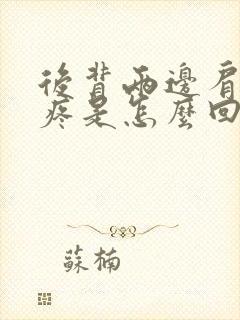 後背兩邊肩
疼是怎麼回
蘇楠